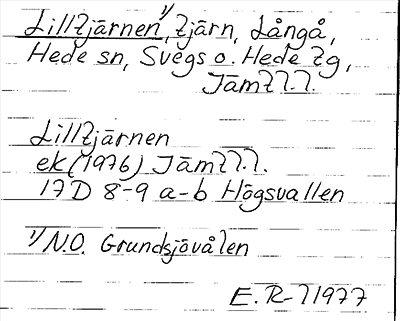 Lilltjärnen,¹⁾ tjärn, Långå,
Hede sn, Svegs o. Hede tg,
Jämtl.l.
Lilltjärnen
ek (1976) Jämtl.l.
17D 8-9 a-b Högsvallen
¹⁾ N.O. Grundsjövålen
E. R-l 1977